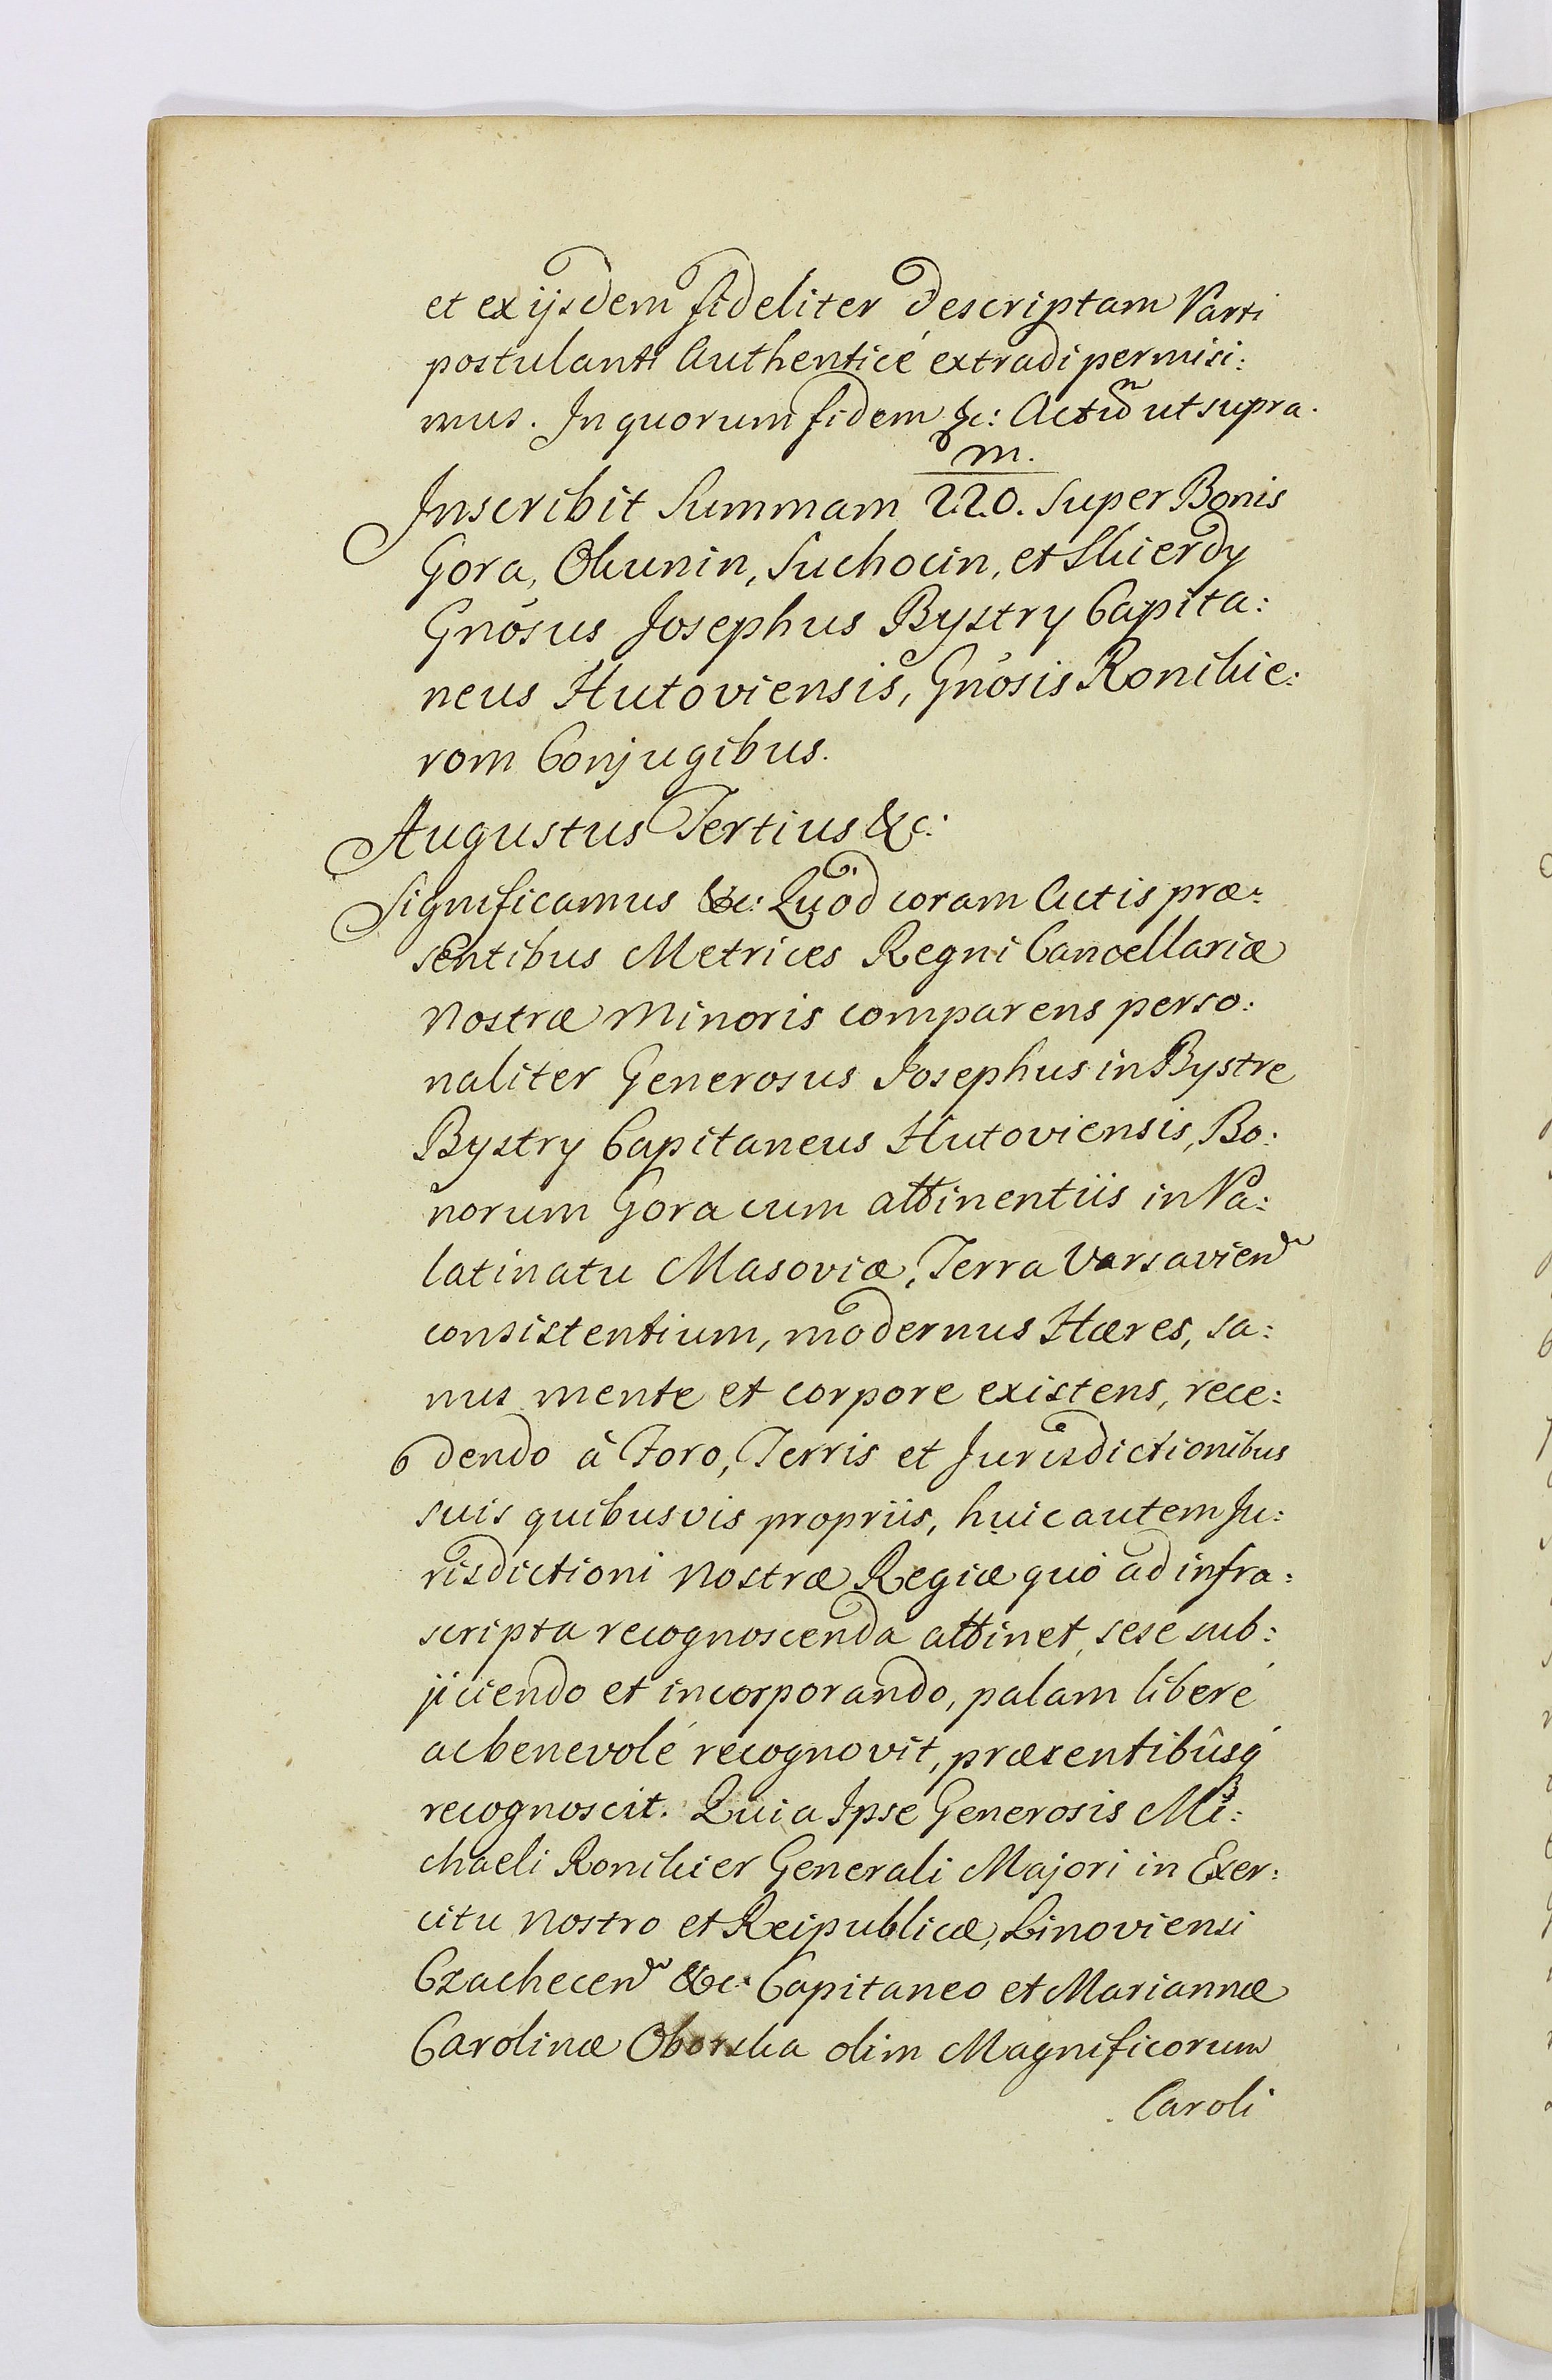 et ex ijsdem fideliter descriptam Parti
postulanti Authenticé extradi permisi:
mus. In quorum fidem &c: Actũ ut supra.
m.
Inscribit Summam 220. super Bonis
Gora, Okunin, Suchocin, et Skierdy
Gnõsus Josephus Bystry Capita:
neus Hutoviensis, Gnõsis Ronikie:
rom Conjugibus.
Augustus Tertius &c:
Significamus &c: Quòd coram Actis præ:
sentibus Metrices Regni Cancellariæ
Nostræ Minoris comparens perso:
naliter Generosus Josephus in Bystre
Bystry Capitaneus Hutoviensis, Bo:
norum Gora cum attinentiis in Pa:
latinatu Masoviæ, Terra Varsavien̄
consistentium, modernus Hæres, sa:
nus mente et corpore existens, rece:
dendo à Foro, Terris et Jurisdictionibus
suis quibusvis propriis, huic autem Ju:
risdictioni Nostræ Regiæ quò ad infra:
scripta recognoscenda attinet, sese sub:
jiciendo et incorporando, palam liberé
ac benevolé recognovit, præsentibûsq́
recognoscit. Quia Ipse Generosis Mi:
chaeli Ronikier Generali Majori in Exer:
citu Nostro et Reipublicæ, Linoviensi
Czachecen̄ &c: Capitaneo et Mariannæ
Carolinæ Oborska olim Magnificorum
Caroli